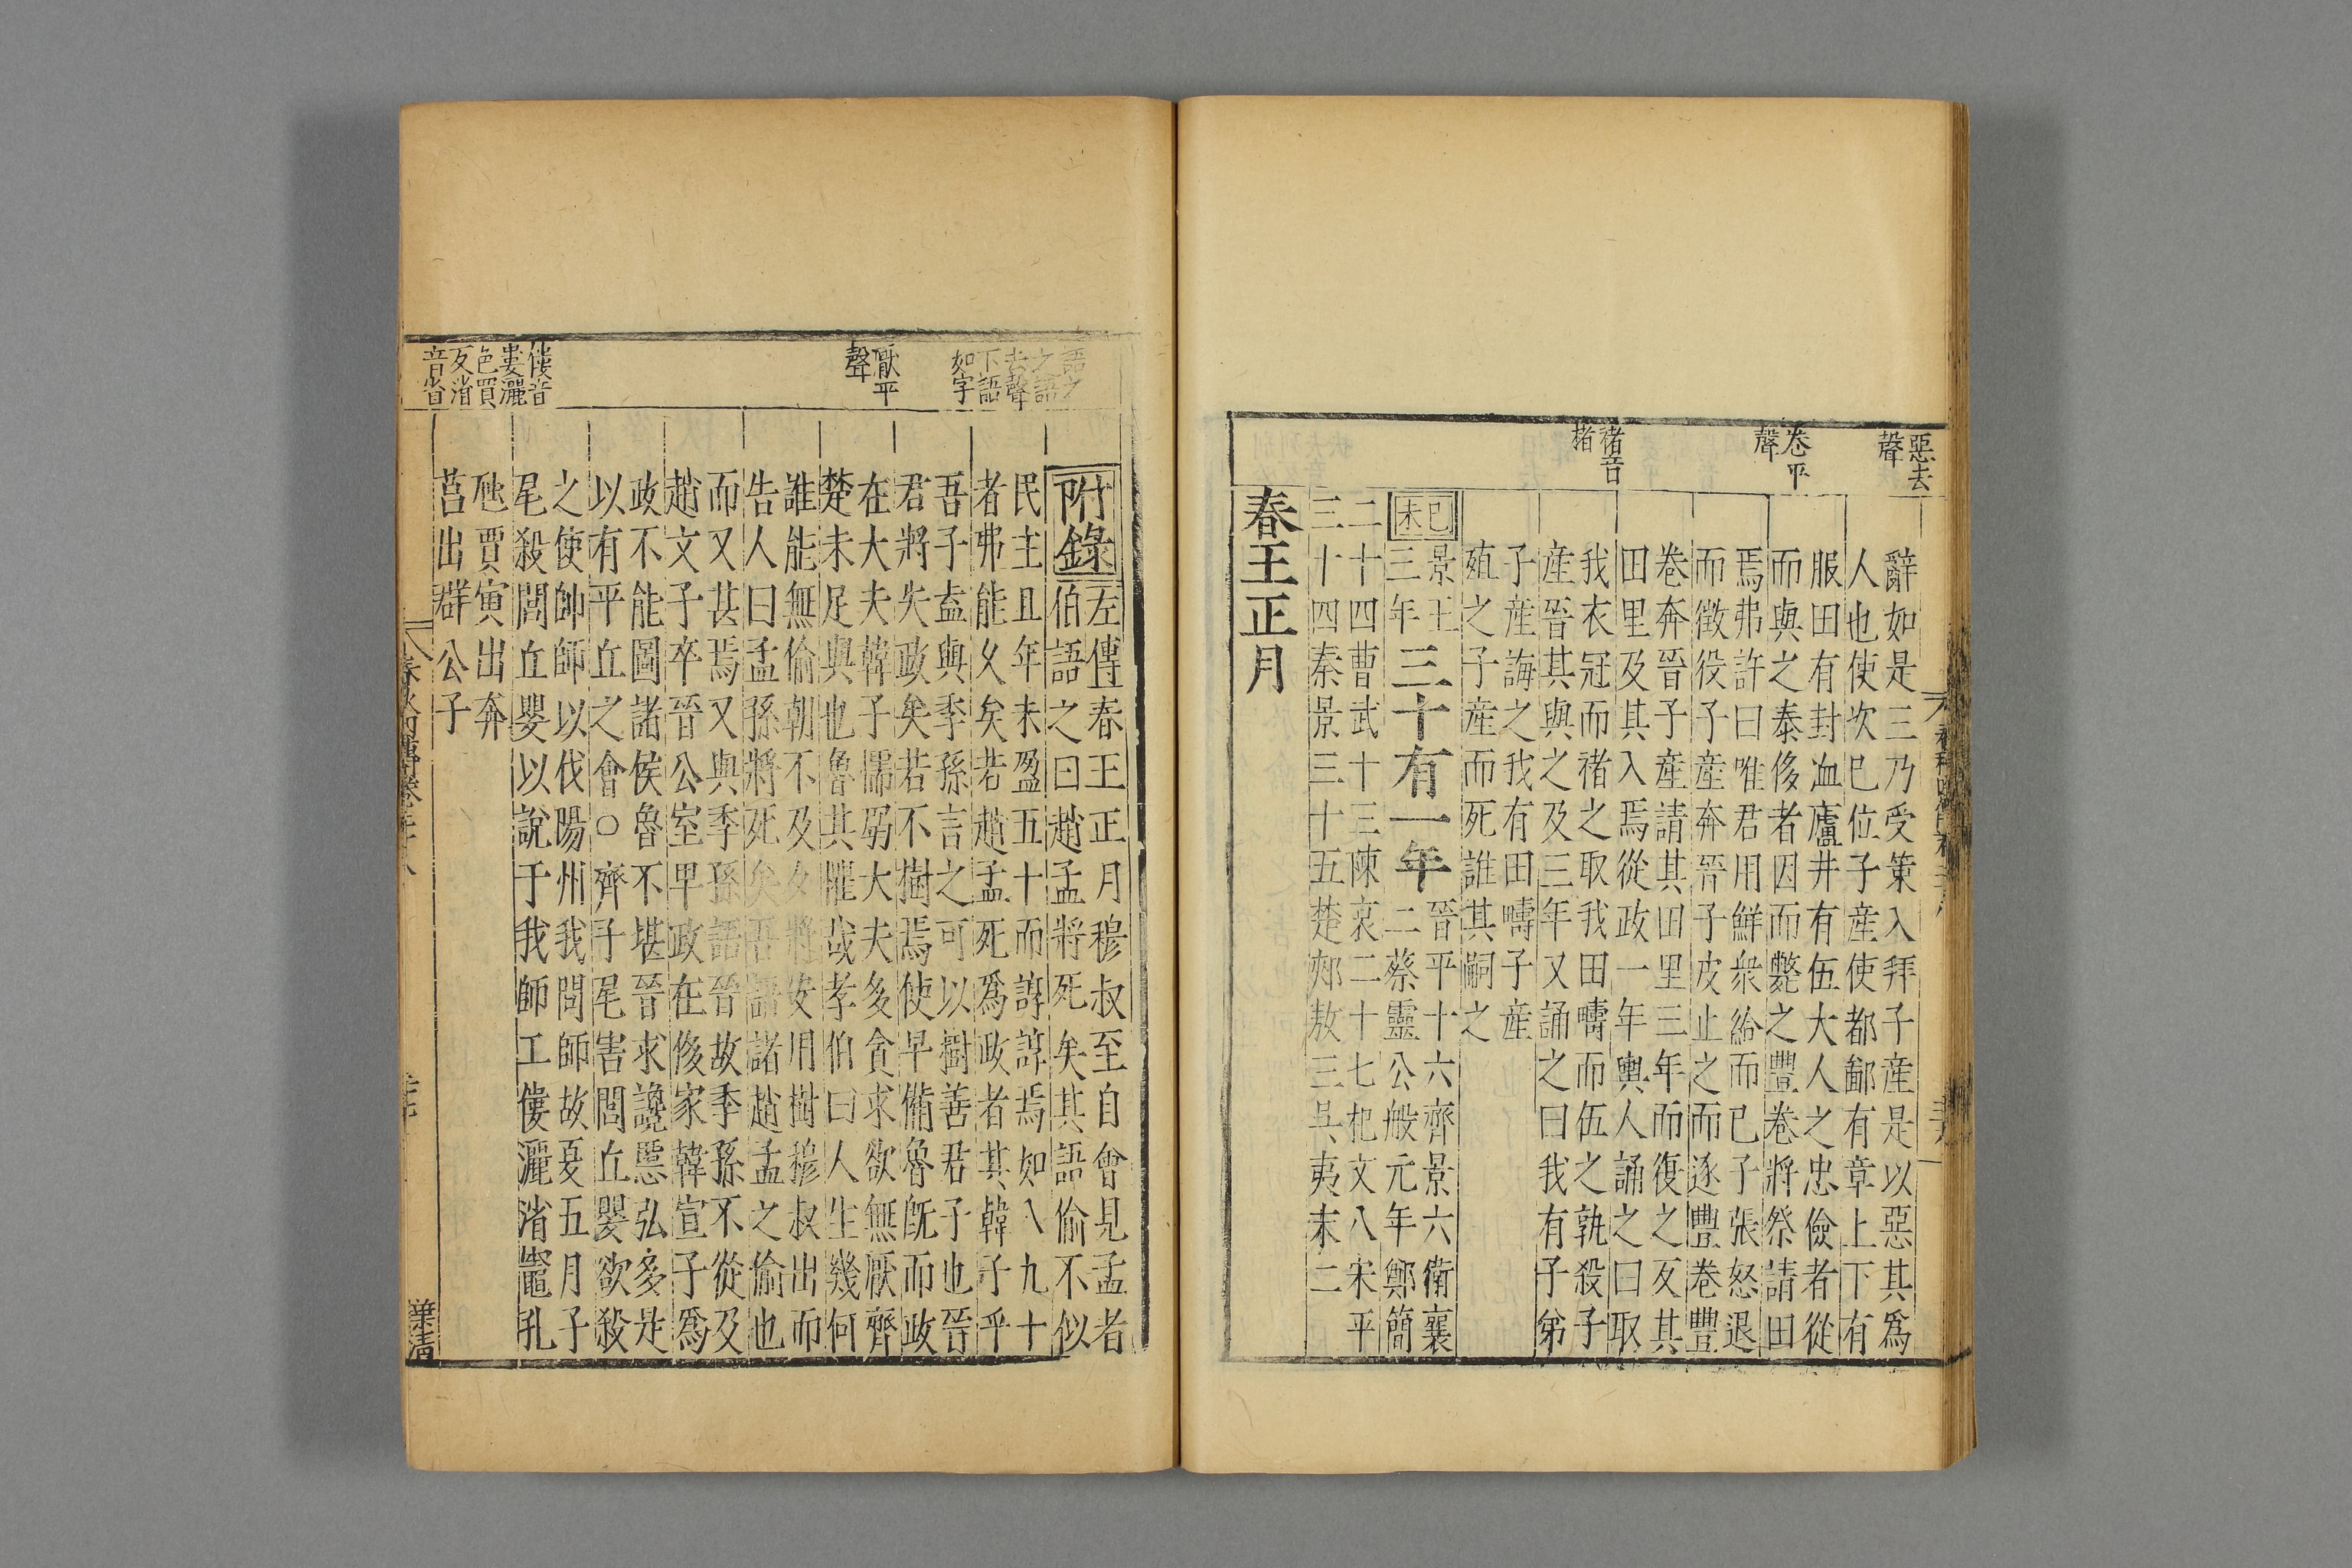 惡去
聲
卷平
聲
褚音
楮
辭如是三乃受策入拜子產是以惡其爲
人也使次已位子產使都鄙有章上下有
服田有封洫廬井有伍大人之忠儉者從
而與之泰侈者因而斃之豐卷將祭請田
焉弗許曰唯君用鮮衆給而已子張怒退
而徵役子產奔晉子皮止之而逐豐卷豐
卷奔晉子產請其田里三年而復之反其
田里及其入焉從政一年輿人誦之曰取
我衣冠而褚之取我田疇而伍之孰殺子
產吾其與之及三年又誦之曰我有子弟
子產誨之我有田疇子產
殖之子產而死誰其嗣之
己未
景王
三年
三十有一年
晉平十六齊景六衛襄
二蔡靈公般元年鄭簡
二十四曹武十三陳哀二十七杞文八宋平
三十四秦景三十五楚郟敖三吳夷末二
春王正月
語之
之語
去聲
下語
如字
厭平
聲
僂音
婁灑
色買
反渻
音省
附錄
左傳春王正月穆叔至自會見孟孝
伯語之曰趙孟將死矣其語偷不似
民主且年未盈五十而諄諄焉如八九十
者弗能久矣若趙孟死爲政者其韓子乎
吾子盍與季孫言之可以樹善君子也晉
君將失政矣若不樹焉使早備魯旣而政
在大夫韓子懦弱大夫多貪求欲無厭齊
楚未足與也魯其懼哉孝伯曰人生幾何
誰能無偷朝不及夕將安用樹穆叔出而
告人曰孟孫將死矣吾語諸趙孟之偷也
而又甚焉又與季孫語晉故季孫不從及
趙文子卒晉公室卑政在侈家韓宣子爲
政不能圖諸侯魯不堪晉求讒慝弘多是
以有平丘之會○齊子尾害閭丘嬰欲殺
之使帥師以伐陽州我問師故夏五月子
尾殺閭丘嬰以說于我師工僂灑渻竈孔
虺賈寅出奔
莒出群公子